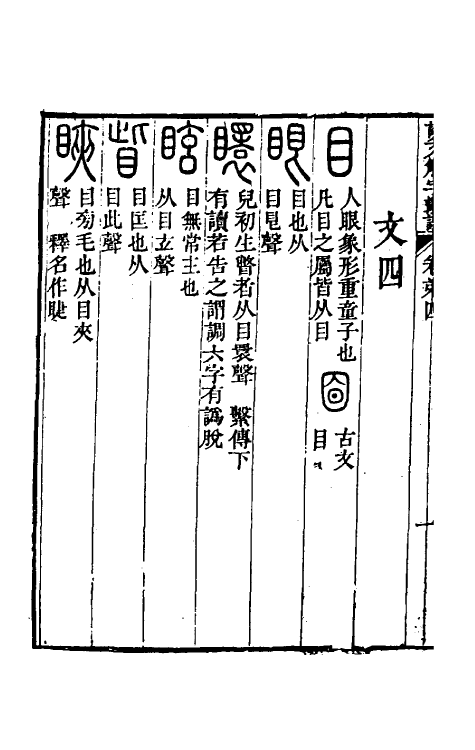 卷弟四
一
文四
目 人眼象形重童子也
凡目之屬皆从目
古文
目
眼 目也从
目㫐聲
瞏 兒初生瞥者从目瞏聲 繫傳下
有讀若告之謂調六字有譌脫
眩 目無常主也
从目玄聲
眥 目匡也从
目此聲
䀹 目旁毛也从目夾
聲 釋名作睫